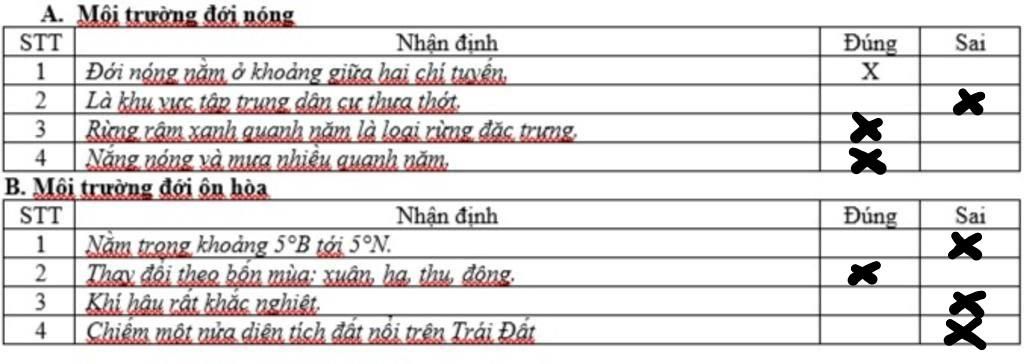 A. Môi trường đới nóng
STT Nhận định Đúng Sai
1 Đới nóng nằm ở khoảng giữa hai chí tuyến. X
2 Là khu vực tập trung dân cư thưa thớt.
3 Rừng rậm xanh quanh năm là loại rừng đặc trưng.
4 Nắng nóng và mưa nhiều quanh năm.
B. Môi trường đới ôn hòa
STT Nhận định Đúng Sai
1 Nằm trong khoảng 5°B tới 5°N.
2 Thay đổi theo bốn mùa: xuân, hạ, thu, đông.
3 Khí hậu rất khắc nghiệt.
4 Chiếm một nửa diện tích đất nổi trên Trái Đất